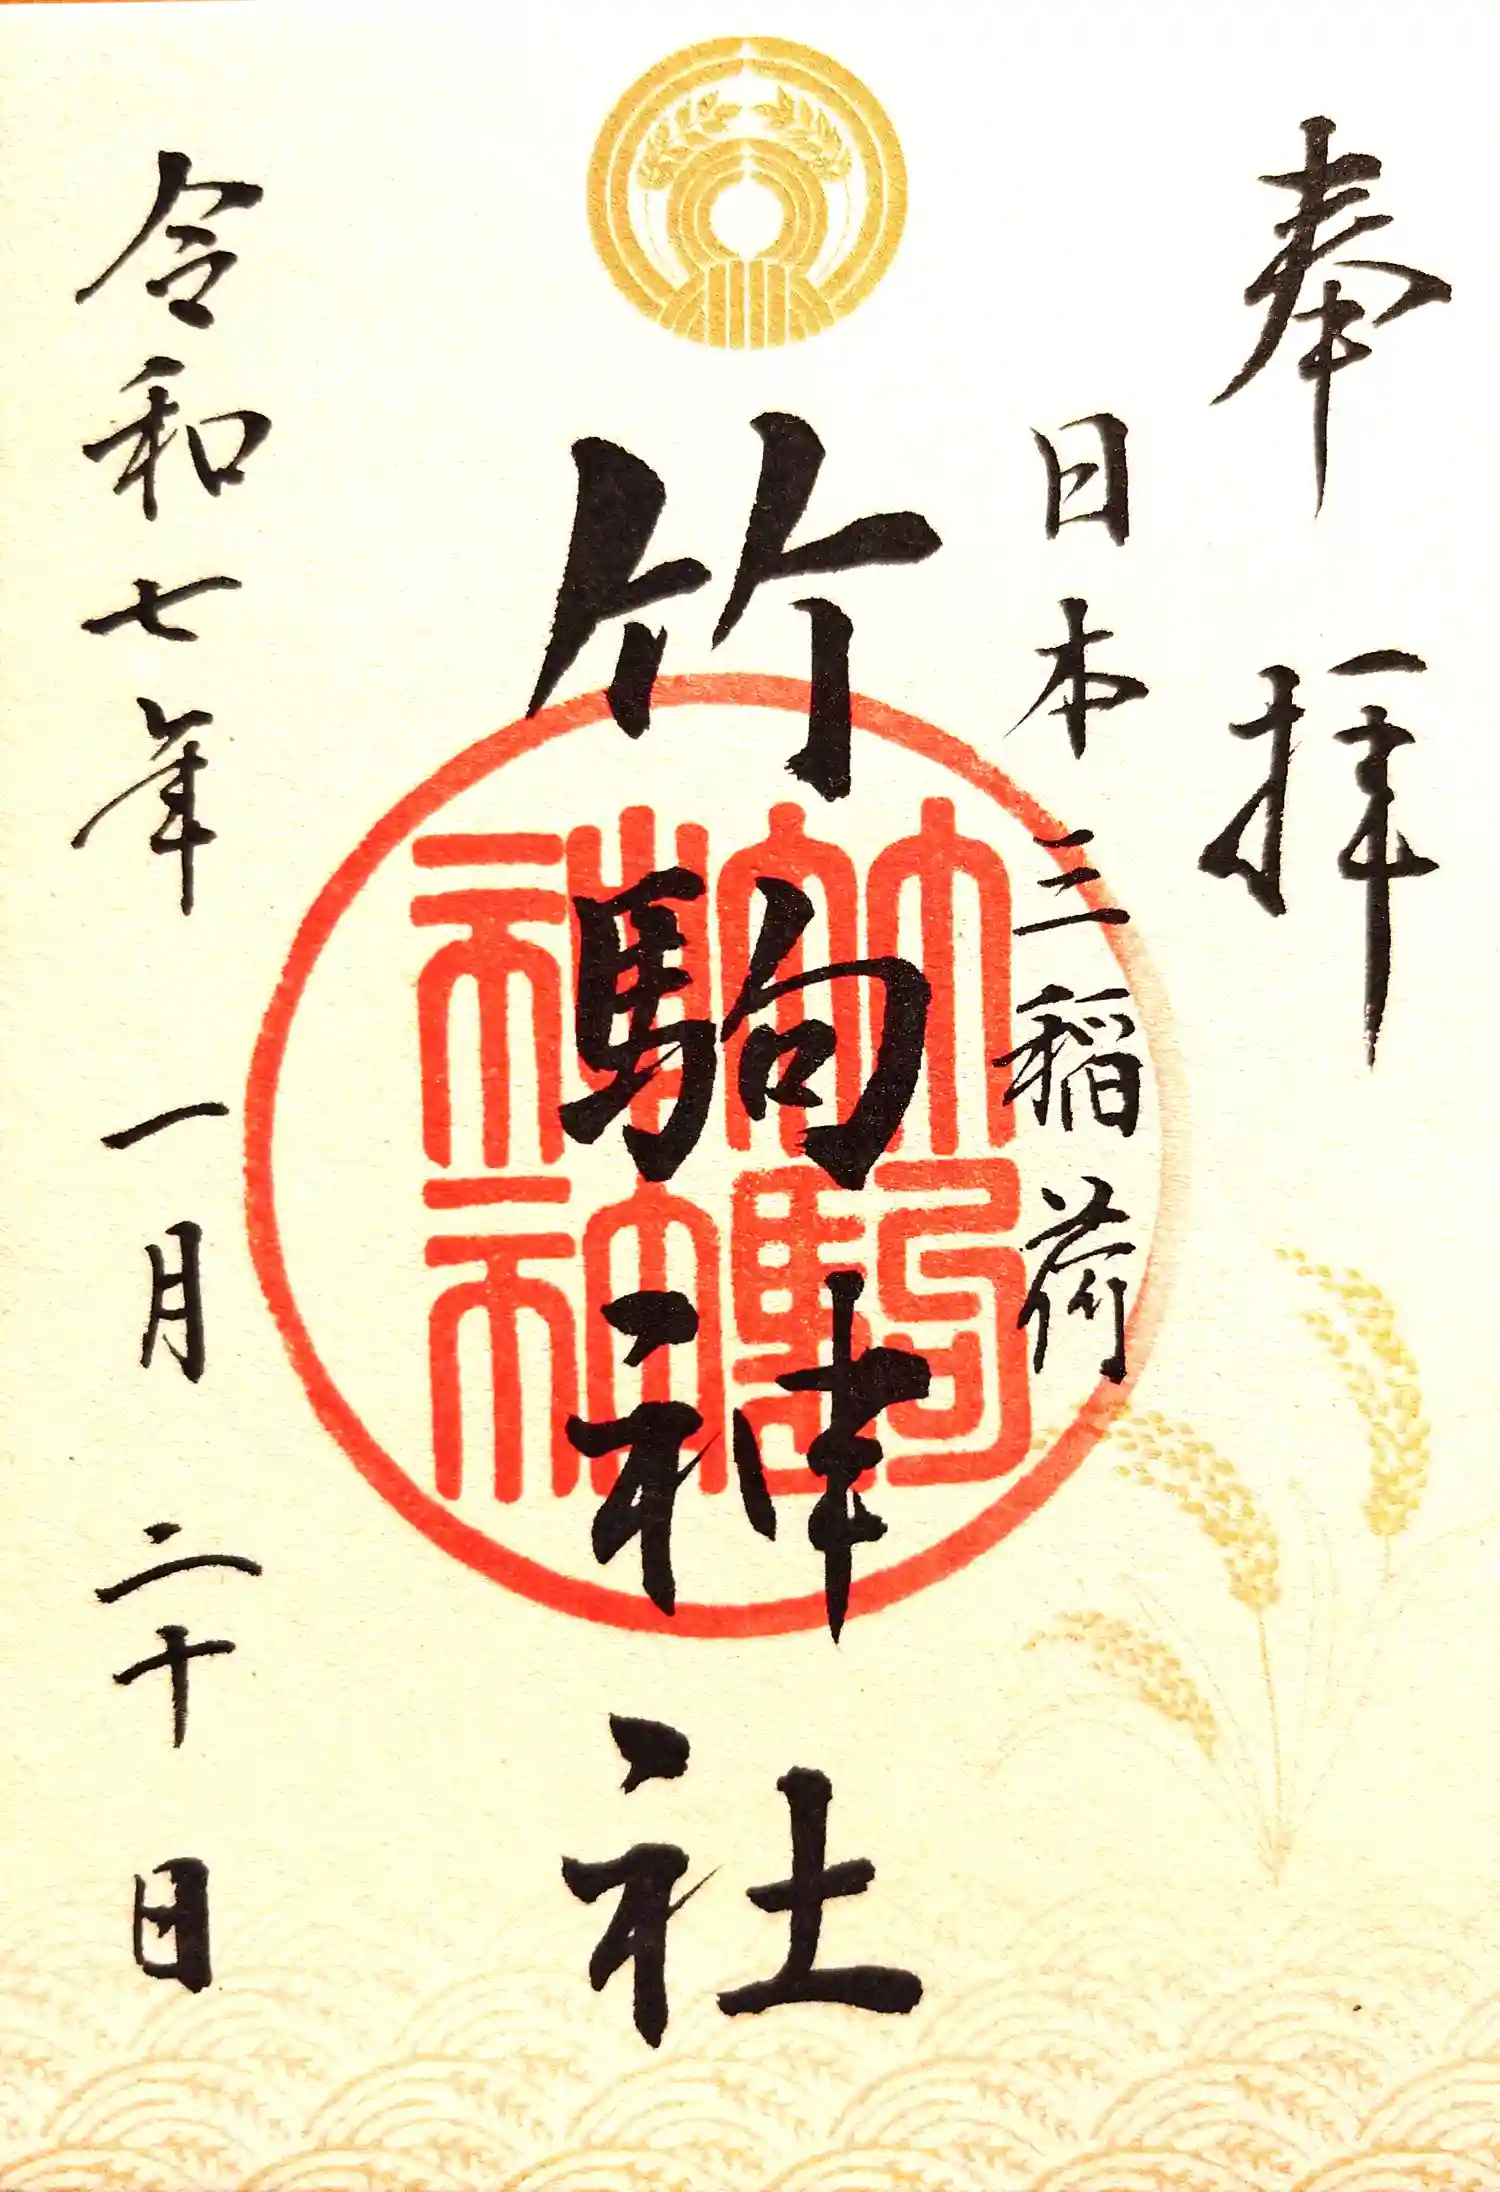 奉拝
日本三稲荷
竹駒神社
令和七年一月二十日
竹駒神社